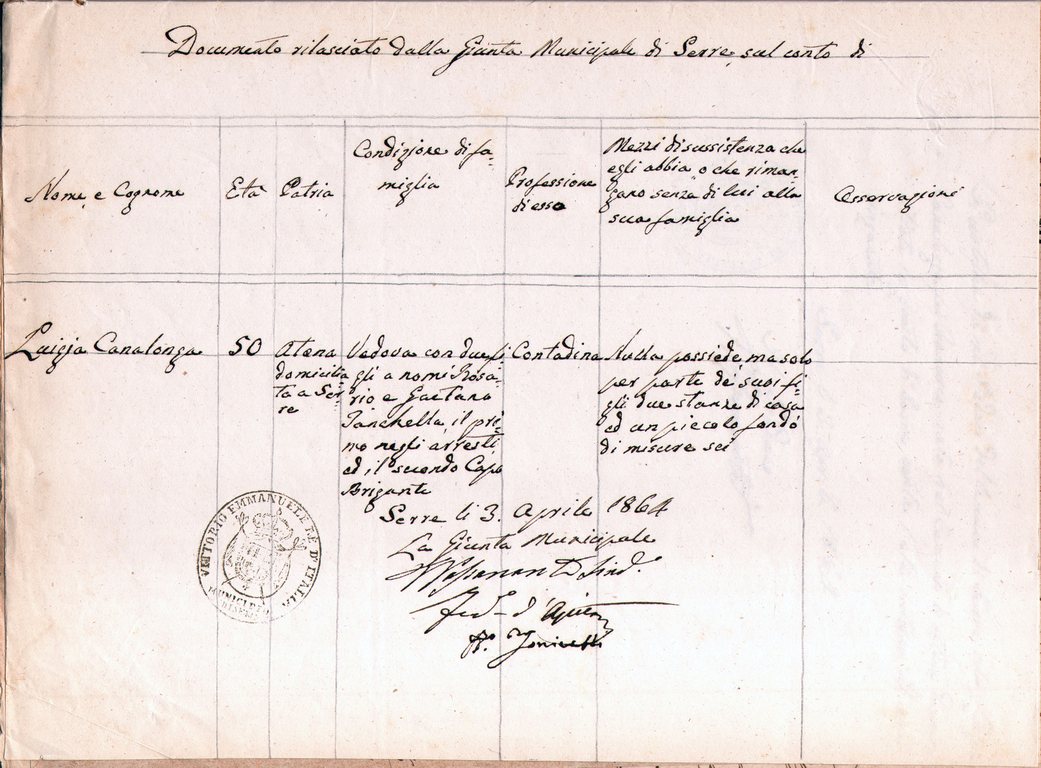 Documento rilasciato dalla Giunta Municipale di Serre, sul conto di
Nome, e Cognome
Età
Patria
Condizione di fa-
miglia
Professione
di esso
Mezzi di sussistenza che
egli abbia, o che riman-
gano senza di lui alla
sua famiglia
Osservazioni
Luigia Canalonga
50
Atena
domicilia-
ta a Ser-
re
Vedova con due fi-
gli a nomi Rosa-
rio e Gaetano
Tanchella, il pri-
mo negli arresti,
ed il secondo Capo
Brigante
Contadina
Nulla possiede, ma solo
per parte de' suoi fi-
gli due stanze di casa
ed un piccolo fondo
di misure sei
Serre li 3. Aprile 1864
La Giunta Municipale
Sind.
VITTORIO EMMANUELE RE D'ITALIA